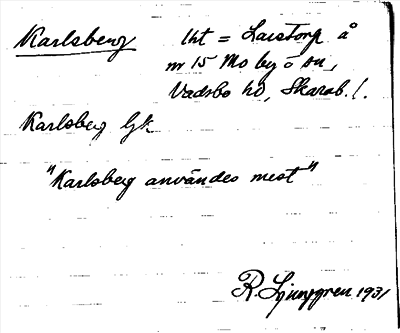 Karlsberg lht = Larstorp å
nr 15 Mo by o sn,
Vadsbo hd, Skarab. l.
Karlsberg lgk
"Karlsberg användes mest"
R. Ljunggren 1931